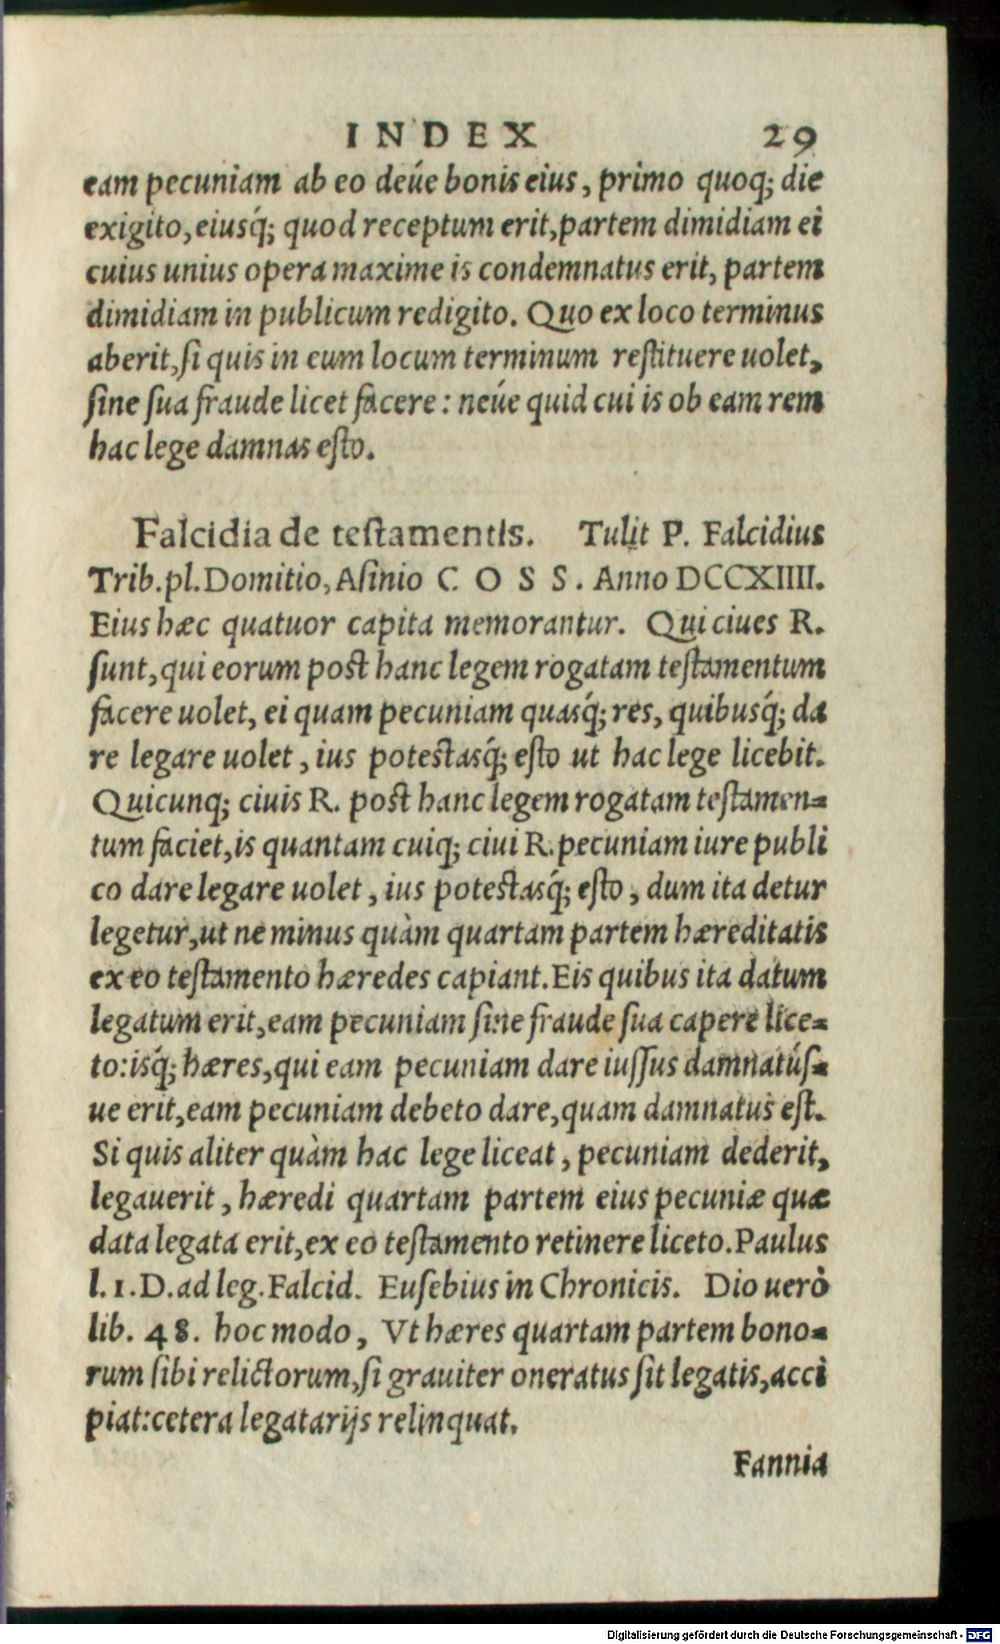 INDEX 29
eam pecuniam ab eo deúe bonis eius, primo quoq; die
exigito, eiusq́; quod receptum erit, partem dimidiam ei
cuius unius opera maxime is condemnatus erit, partem
dimidiam in publicum redigito. Quo ex loco terminus
aberit, ſi quis in eum locum terminum reſtituere uolet,
ſine ſua fraude licet facere: neúe quid cui is ob eam rem
hac lege damnas eſto.
Falcidia de teſtamentis. Tulit P. Falcidius
Trib. pl. Domitio, Aſinio COSS. Anno DCCXIIII.
Eius hæc quatuor capita memorantur. Qui ciues R.
ſunt, qui eorum poſt hanc legem rogatam teſtamentum
facere uolet, ei quam pecuniam quasq́; res, quibusq́; da
re legare uolet, ius poteſtasq́; eſto ut hac lege licebit.
Quicunq; ciuis R. poſt hanc legem rogatam teſtamen=
tum faciet, is quantam cuiq; ciui R. pecuniam iure publi
co dare legare uolet, ius poteſtasq́; eſto, dum ita detur
legetur, ut ne minus quàm quartam partem hæreditatis
ex eo teſtamento hæredes capiant. Eis quibus ita datum
legatum erit, eam pecuniam ſine fraude ſua capere lice=
to: isq́; hæres, qui eam pecuniam dare iuſſus damnatúſ=
ue erit, eam pecuniam debeto dare, quam damnatus eſt.
Si quis aliter quàm hac lege liceat, pecuniam dederit,
legauerit, hæredi quartam partem eius pecuniæ quæ
data legata erit, ex eo teſtamento retinere liceto. Paulus
l. 1. D. ad leg. Falcid. Euſebius in Chronicis. Dio uerò
lib. 48. hoc modo, Vt hæres quartam partem bono=
rum ſibi relictorum, ſi grauiter oneratus ſit legatis, acci
piat: cetera legatarijs relinquat.
Fannia
Digitalisierung gefördert durch die Deutsche Forschungsgemeinschaft - DFG